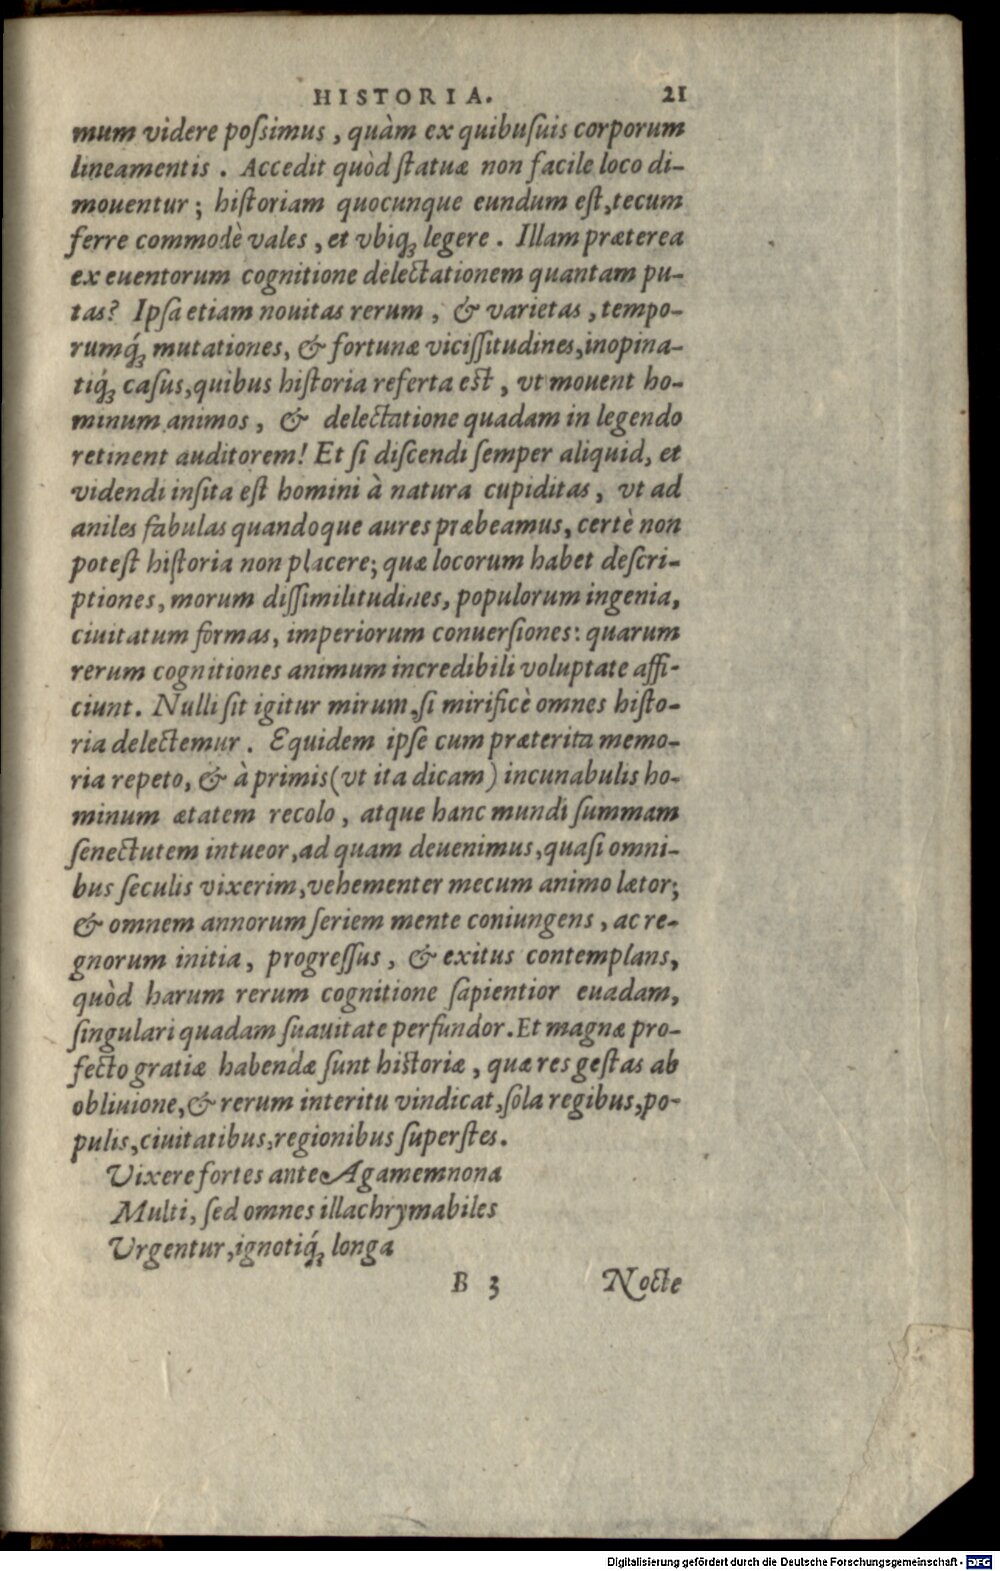 HISTORIA. 21
mum videre poſsimus, quàm ex quibuſuis corporum
lineamentis. Accedit quòd ſtatuæ non facile loco di-
mouentur; hiſtoriam quocunque eundum eſt, tecum
ferre commodè vales, et vbiqꝫ legere. Illam præterea
ex euentorum cognitione delectationem quantam pu-
tas? Ipſa etiam nouitas rerum, & varietas, tempo-
rumq́ꝫ mutationes, & fortunæ viciſſitudines, inopina-
tiq́ꝫ caſus, quibus hiſtoria referta eſt, vt mouent ho-
minum animos, & delectatione quadam in legendo
retinent auditorem! Et ſi diſcendi ſemper aliquid, et
videndi inſita eſt homini à natura cupiditas, vt ad
aniles fabulas quandoque aures præbeamus, certè non
poteſt hiſtoria non placere; quæ locorum habet deſcri-
ptiones, morum diſſimilitudines, populorum ingenia,
ciuitatum formas, imperiorum conuerſiones: quarum
rerum cognitiones animum incredibili voluptate affi-
ciunt. Nulli ſit igitur mirum, ſi mirificè omnes hiſto-
ria delectemur. Equidem ipſe cum præterita memo-
ria repeto, & à primis (vt ita dicam) incunabulis ho-
minum ætatem recolo, atque hanc mundi ſummam
ſenectutem intueor, ad quam deuenimus, quaſi omni-
bus ſeculis vixerim, vehementer mecum animo lætor;
& omnem annorum ſeriem mente coniungens, ac re-
gnorum initia, progreſſus, & exitus contemplans,
quòd harum rerum cognitione ſapientior euadam,
ſingulari quadam ſuauitate perfundor. Et magnæ pro-
fecto gratiæ habendæ ſunt hiſtoriæ, quæ res geſtas ab
obliuione, & rerum interitu vindicat, ſola regibus, po-
pulis, ciuitatibus, regionibus ſuperſtes.
Vixere fortes ante Agamemnona
Multi, ſed omnes illachrymabiles
Urgentur, ignotiq́ꝫ longa
B 3 Nocte
Digitalisierung gefördert durch die Deutsche Forschungsgemeinschaft - DFG